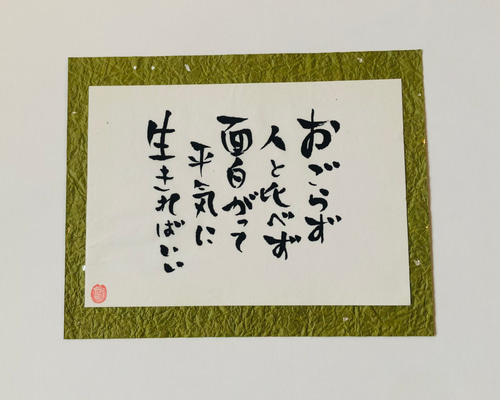 おごらず
人と比べず
面白がって
平気に
生きればいい